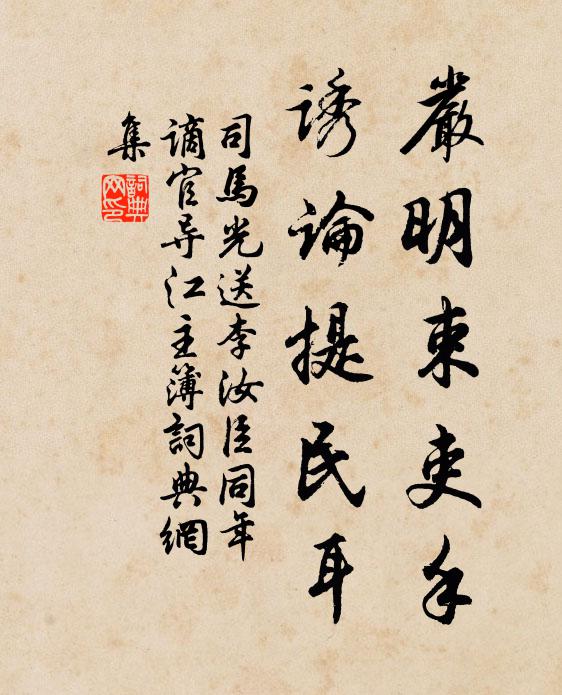 嚴明束吏手
誘論提民耳
司馬光送李汝臣同年
謫官导江主簿詞典網
集
詞典
网印